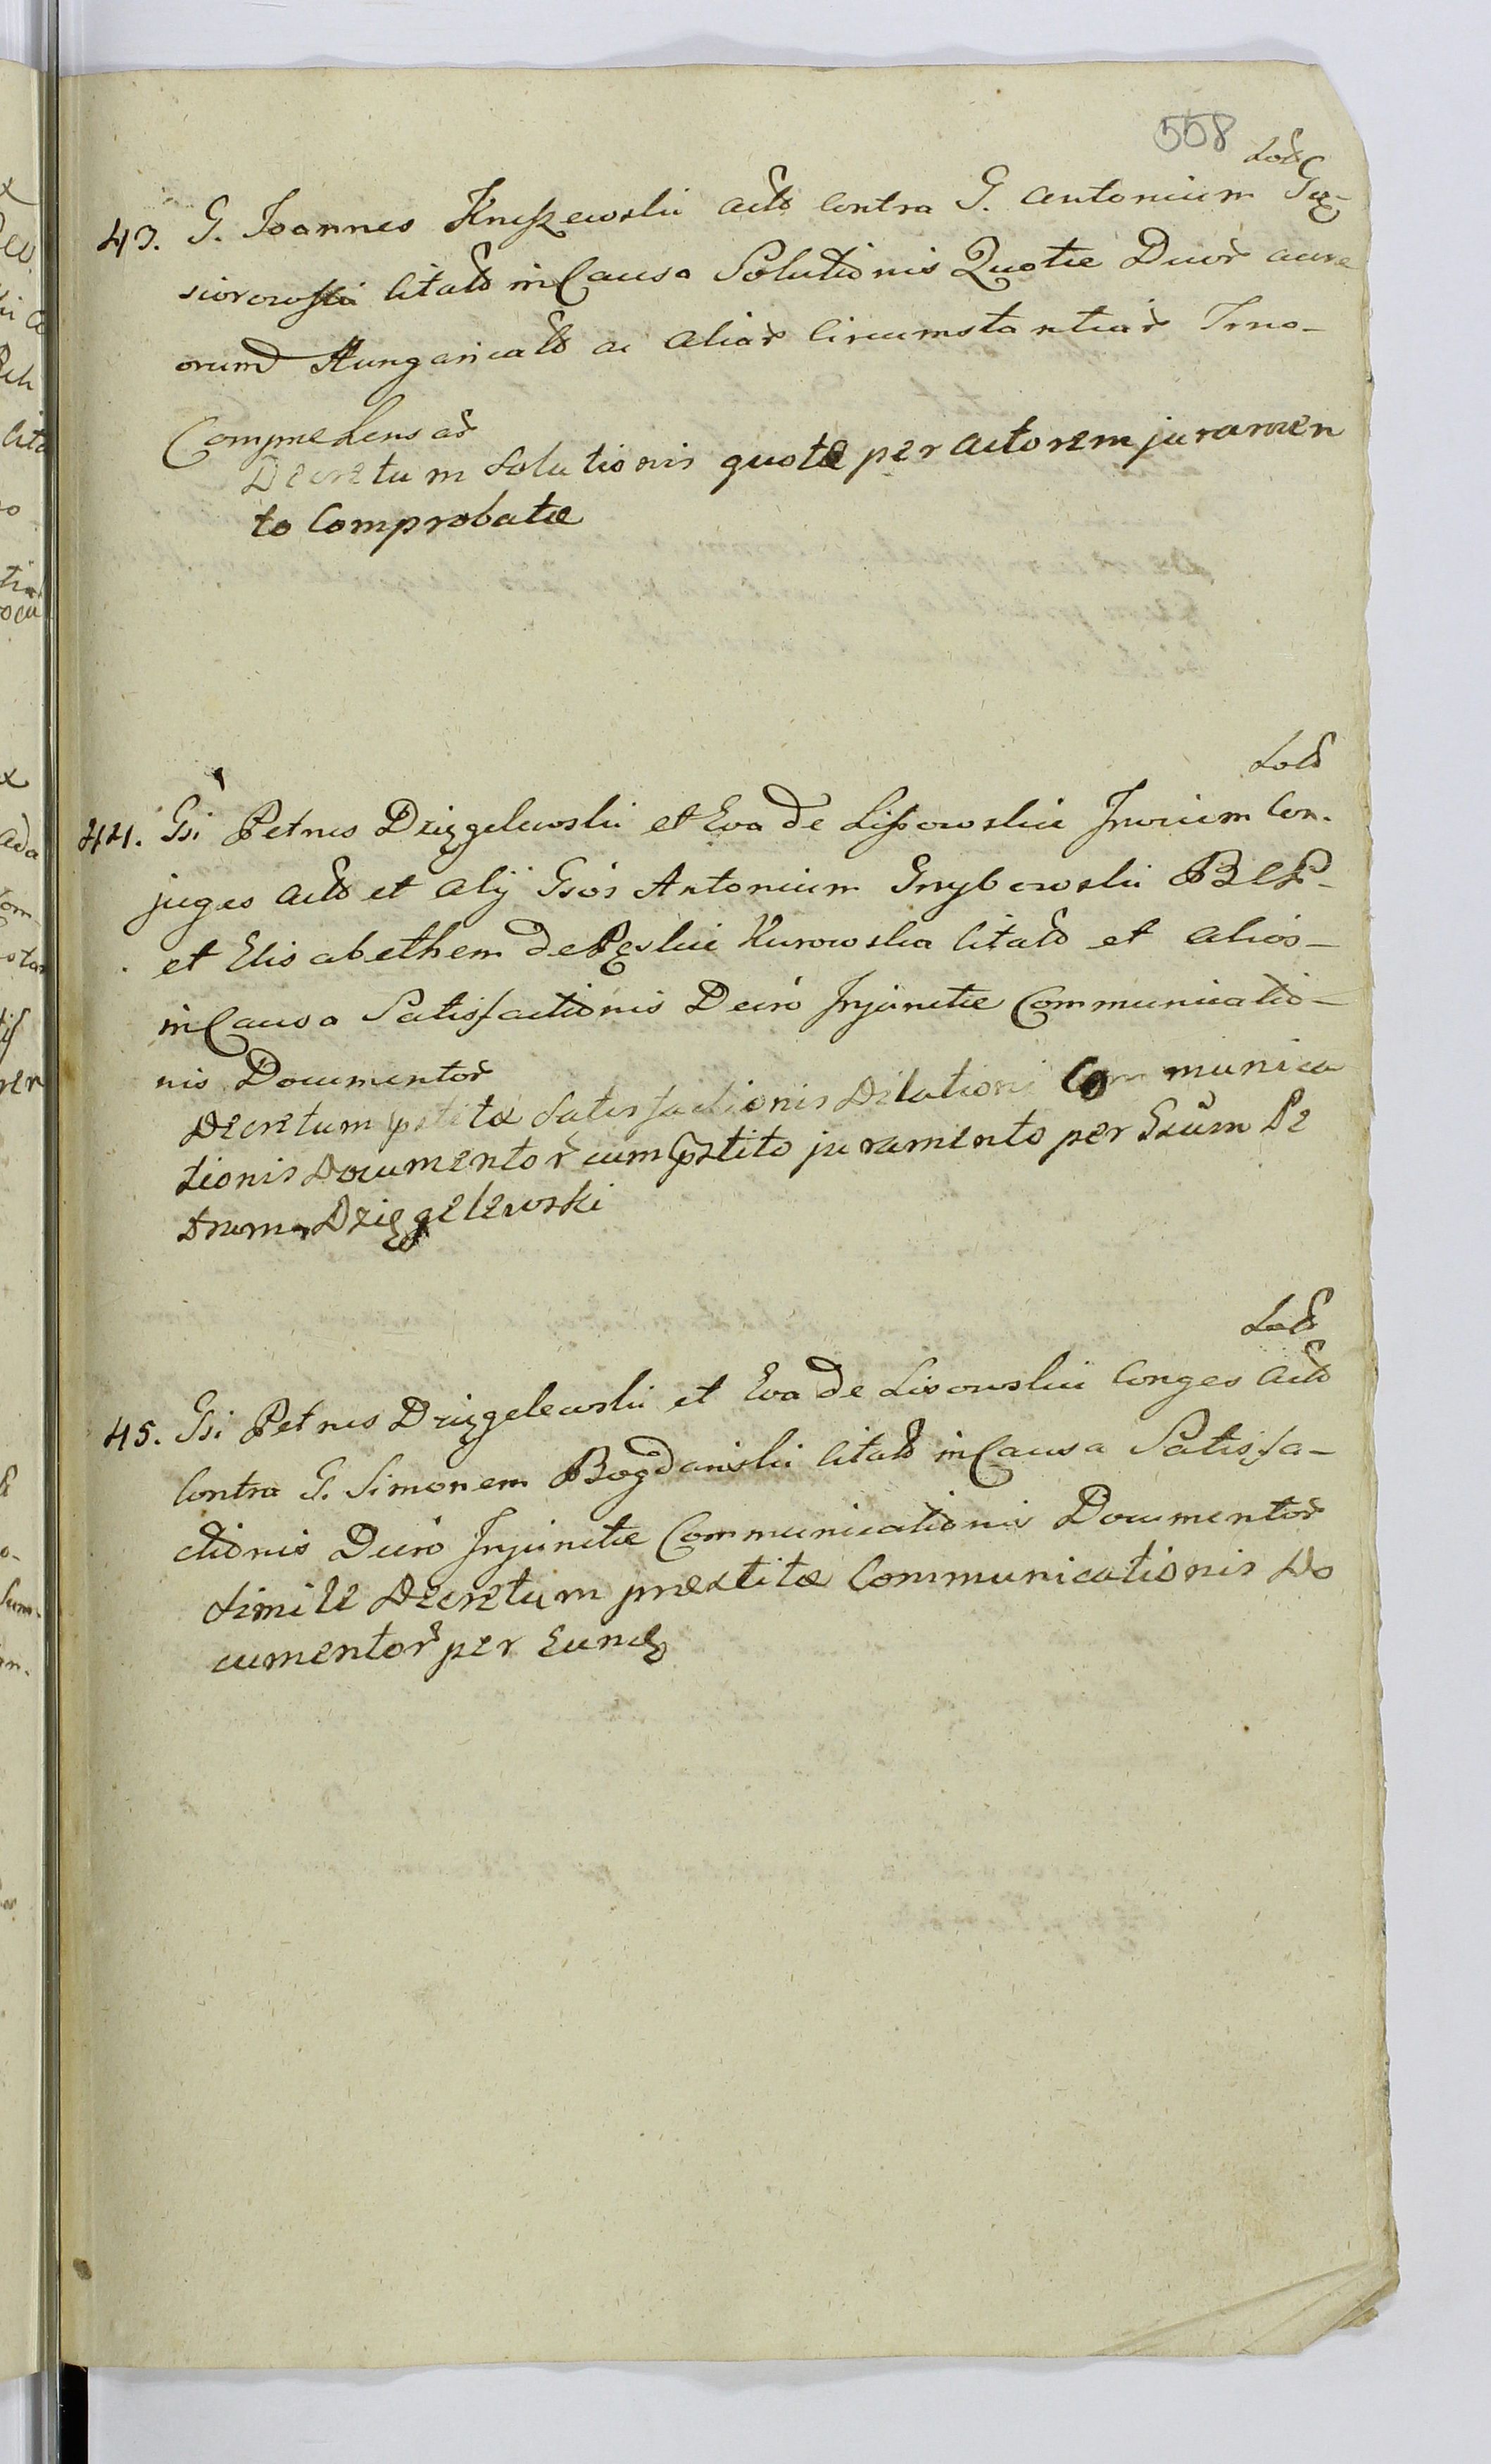 558
43. G. Joannes Kniszewski act contra G. Antonium Gą-
siorowski citat in Causa Solutionis Quotæ Duor aure
orum Hungaricalt ac aliar circumstantiar Trno-
Comprehensar
Decretum Solutionis quotæ per actorem juramen
to Comprobatæ
44. Gsi Petrus Dzięgelewski et Eva de Lissowskie Invicem Con-
juges act et alij Gsós Antonium Grzybowski
et Elisabethem de Kurowska citat et alios-
in Causa Satisfactionis Dcivo Injunctæ Communicatio-
nis Documentor
Decretum satisfactionis Dilationi Communica
tionis Documentor cum pstito juramento per Gsum Pe
trum Dzięgelewski
45. Gsi Petrus Dzięgelewski et Eva de Lisowskie Conges act
Contra G. Simonem Bogdański citat in Causa Satisfa-
ctionis Dciro Injunctæ Communicationis Documentor
Simile Decretum præstitæ Communicationis Do
cumentor per Eund